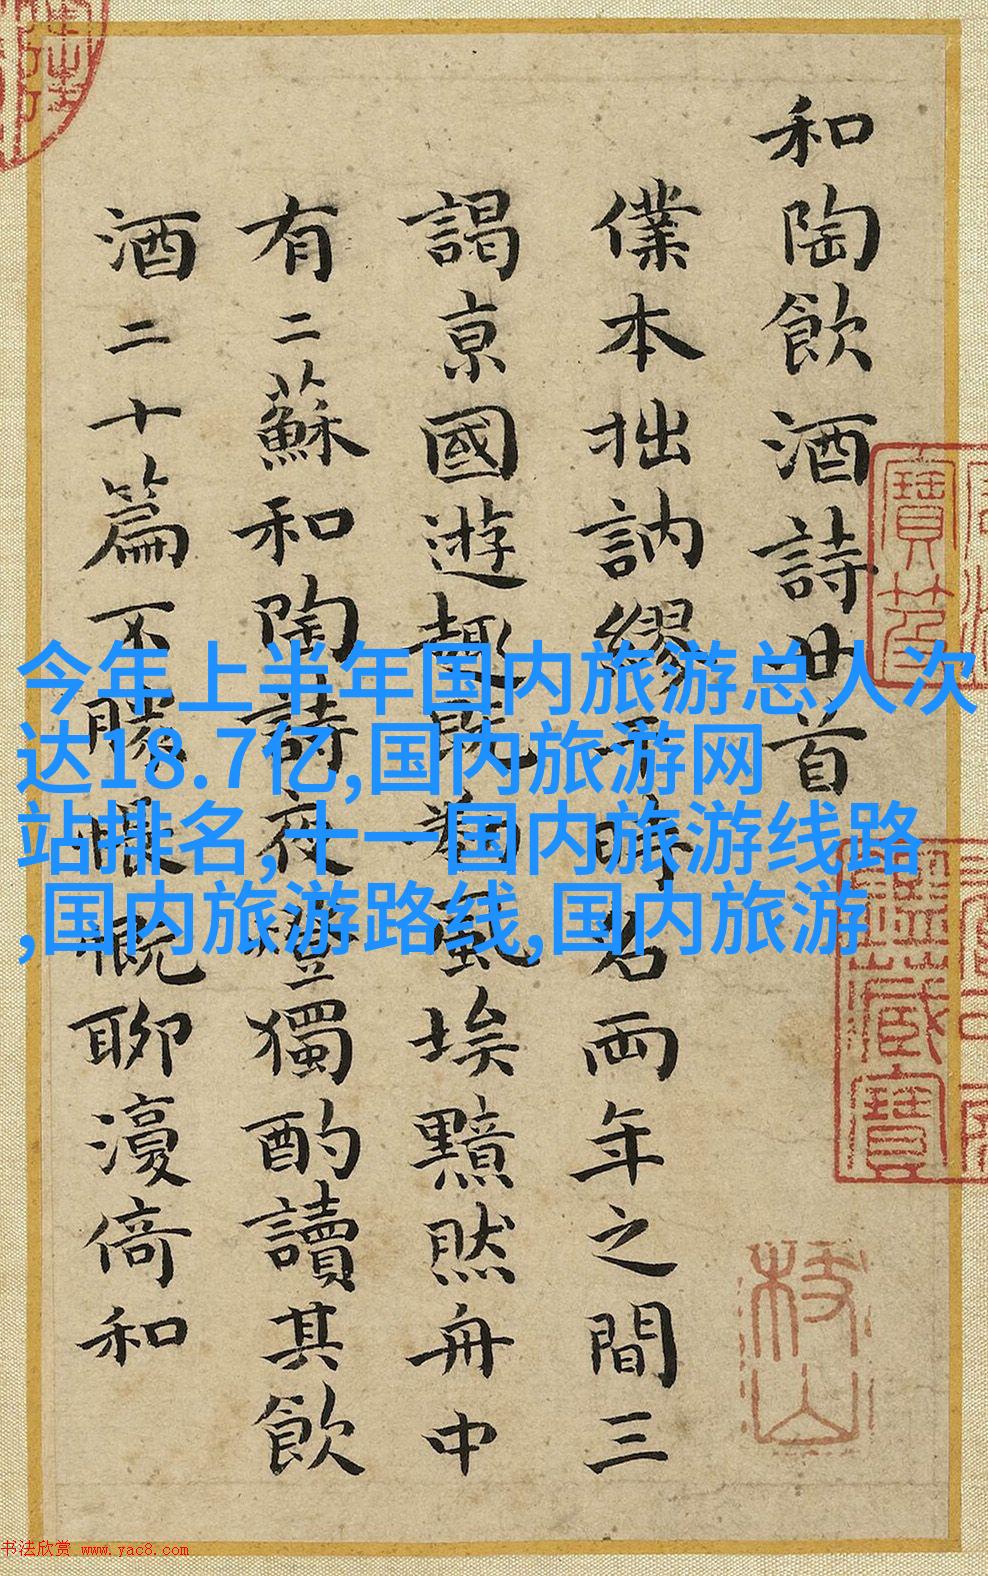 和陶飲酒詩廿首
僕本拙訥繆時名兩年之間三
謁京國遊趣既風埃黯然舟中
有二蘇和陶詩夜燈獨酌讀其飲
酒二十篇不勝悵慨聊復倚和
今年上半年国内旅游总人次
达18.7亿,国内旅游网
站排名,十一国内旅游线路
,国内旅游路线,国内旅游
枝山
书法欣赏 www.yac8.com